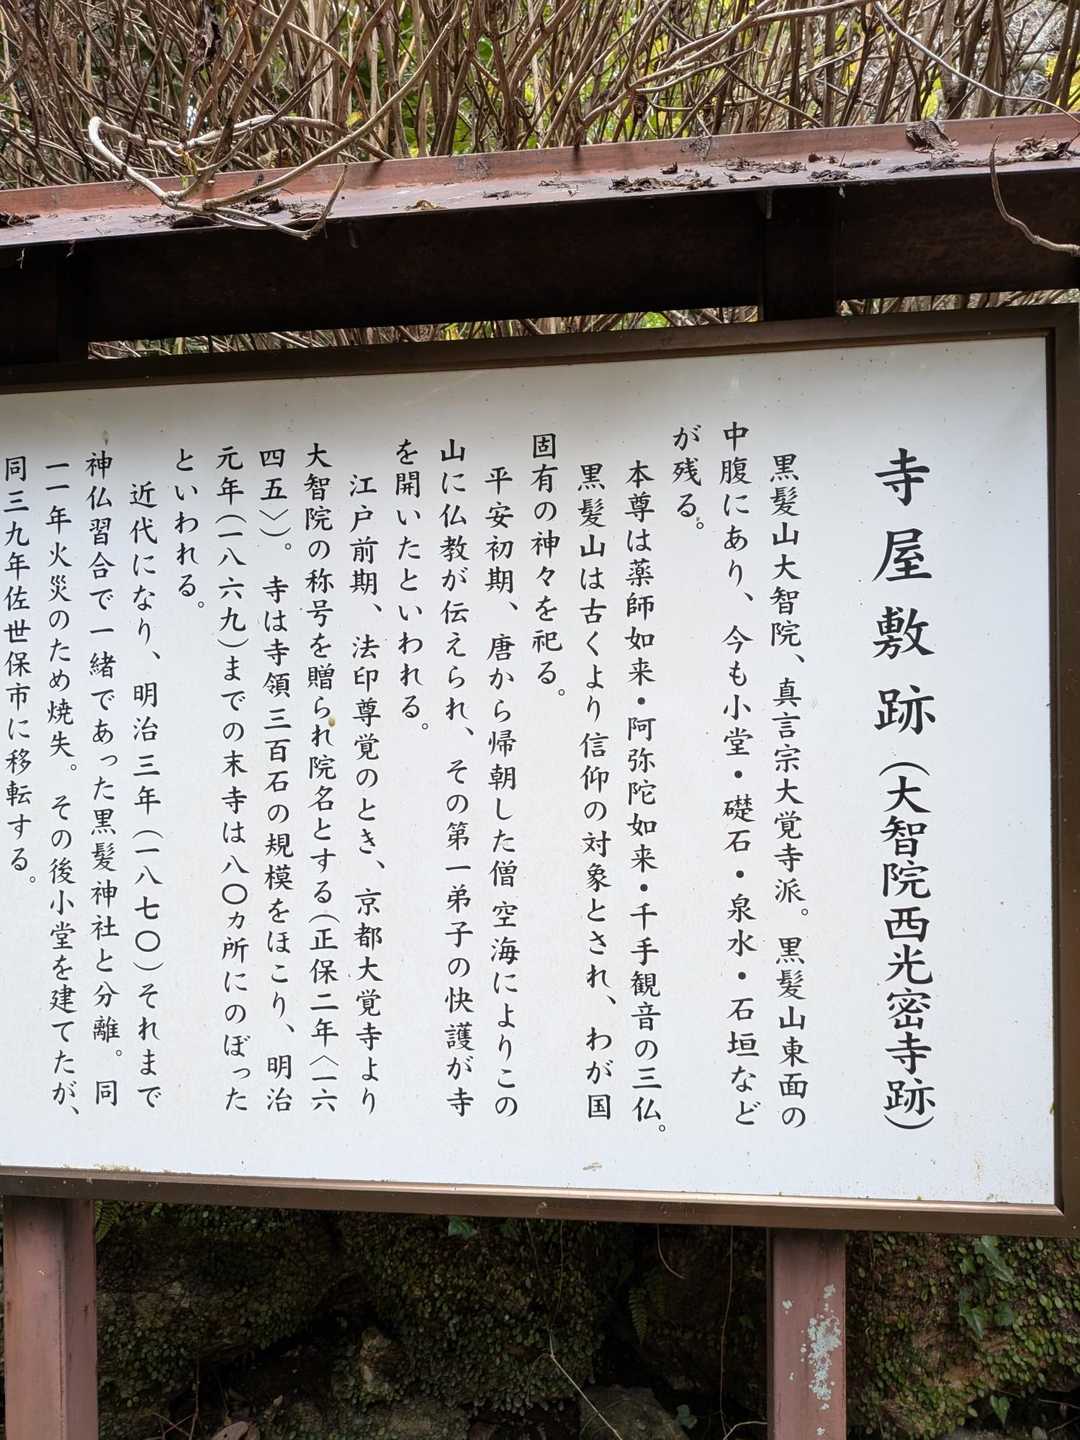 寺屋敷跡（大智院西光密寺跡）
黒髪山大智院、真言宗大覚寺派。黒髪山東面の
中腹にあり、今も小堂・礎石・泉水・石垣など
が残る。
本尊は薬師如来・阿弥陀如来・千手観音の三仏。
黒髪山は古くより信仰の対象とされ、わが国
固有の神々を祀る。
平安初期、唐から帰朝した僧空海によりこの
山に仏教が伝えられ、その第一弟子の快護が寺
を開いたといわれる。
江戸前期、法印尊覚のとき、京都大覚寺より
大智院の称号を贈られ院名とする（正保二年〈一六
四五〉）。寺は寺領三百石の規模をほこり、明治
元年（一八六九）までの末寺は八〇ヵ所にのぼった
といわれる。
近代になり、明治三年（一八七〇）それまで
神仏習合で一緒であった黒髪神社と分離。同
一一年火災のため焼失。その後小堂を建てたが、
同三九年佐世保市に移転する。